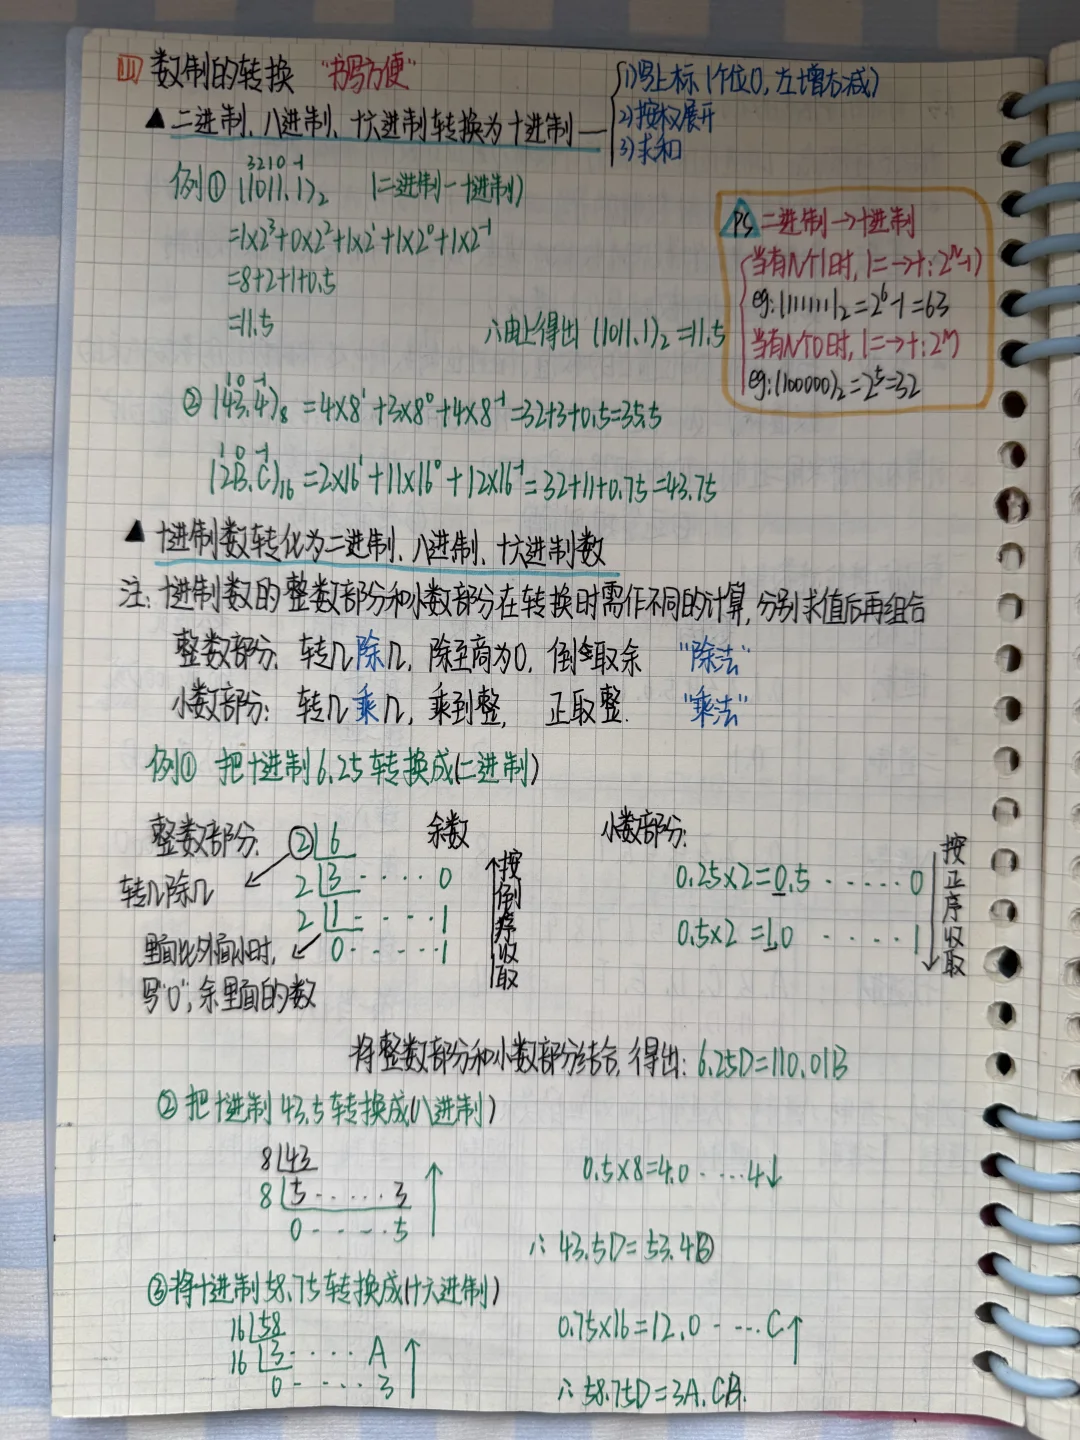 (1) 数制的转换 "书写方便"
1)写上标(个位0,左增右减)
2)按权展开
3)求和
▲二进制、八进制、十六进制转换为十进制
3210-1
例① (1011.1)₂ (二进制-十进制)
=1×2³+0×2²+1×2¹+1×2⁰+1×2⁻¹
=8+2+1+0.5
=11.5
∴由上得出 (1011.1)₂=11.5
PS 二进制→十进制
当有N个1时,(二→十:2ᴺ-1)
eg:(111111)₂=2⁶-1=63
当有N个0时,(二→十:2ᴺ)
eg:(100000)₂=2⁵=32
1 0 -1
② (43.4)₈ =4×8¹+3×8⁰+4×8⁻¹=32+3+0.5=35.5
1 0 -1
(2B.C)₁₆=2×16¹+11×16⁰+12×16⁻¹=32+11+0.75=43.75
▲ 十进制数转化为二进制、八进制、十六进制数
注:十进制数的整数部分和小数部分在转换时需作不同的计算,分别求值后再组合
整数部分:转几除几,除至商为0,倒取余 "除法"
小数部分:转几乘几,乘到整,正取整. "乘法"
例① 把十进制6.25转换成(二进制)
整数部分: 2 6 余数
转几除几 2 3 ···· 0
2 1 ···· 1
0 ····· 1
里面比外面小时,
写"0",余里面的数
按倒序收取
小数部分:
0.25×2=0.5 ····· 0
0.5×2=1.0 ····· 1
按正序收取
将整数部分和小数部分结合,得出:6.25D=110.01B
② 把十进制43.5转换成(八进制)
8 43
8 5 ····· 3
0 ····· 5
0.5×8=4.0 ····· 4↓
∴ 43.5D=53.4B
③将十进制58.75转换成(十六进制)
16 58
16 3 ····· A
0 ····· 3
0.75×16=12.0 ···· C↑
∴ 58.75D=3A.CB.